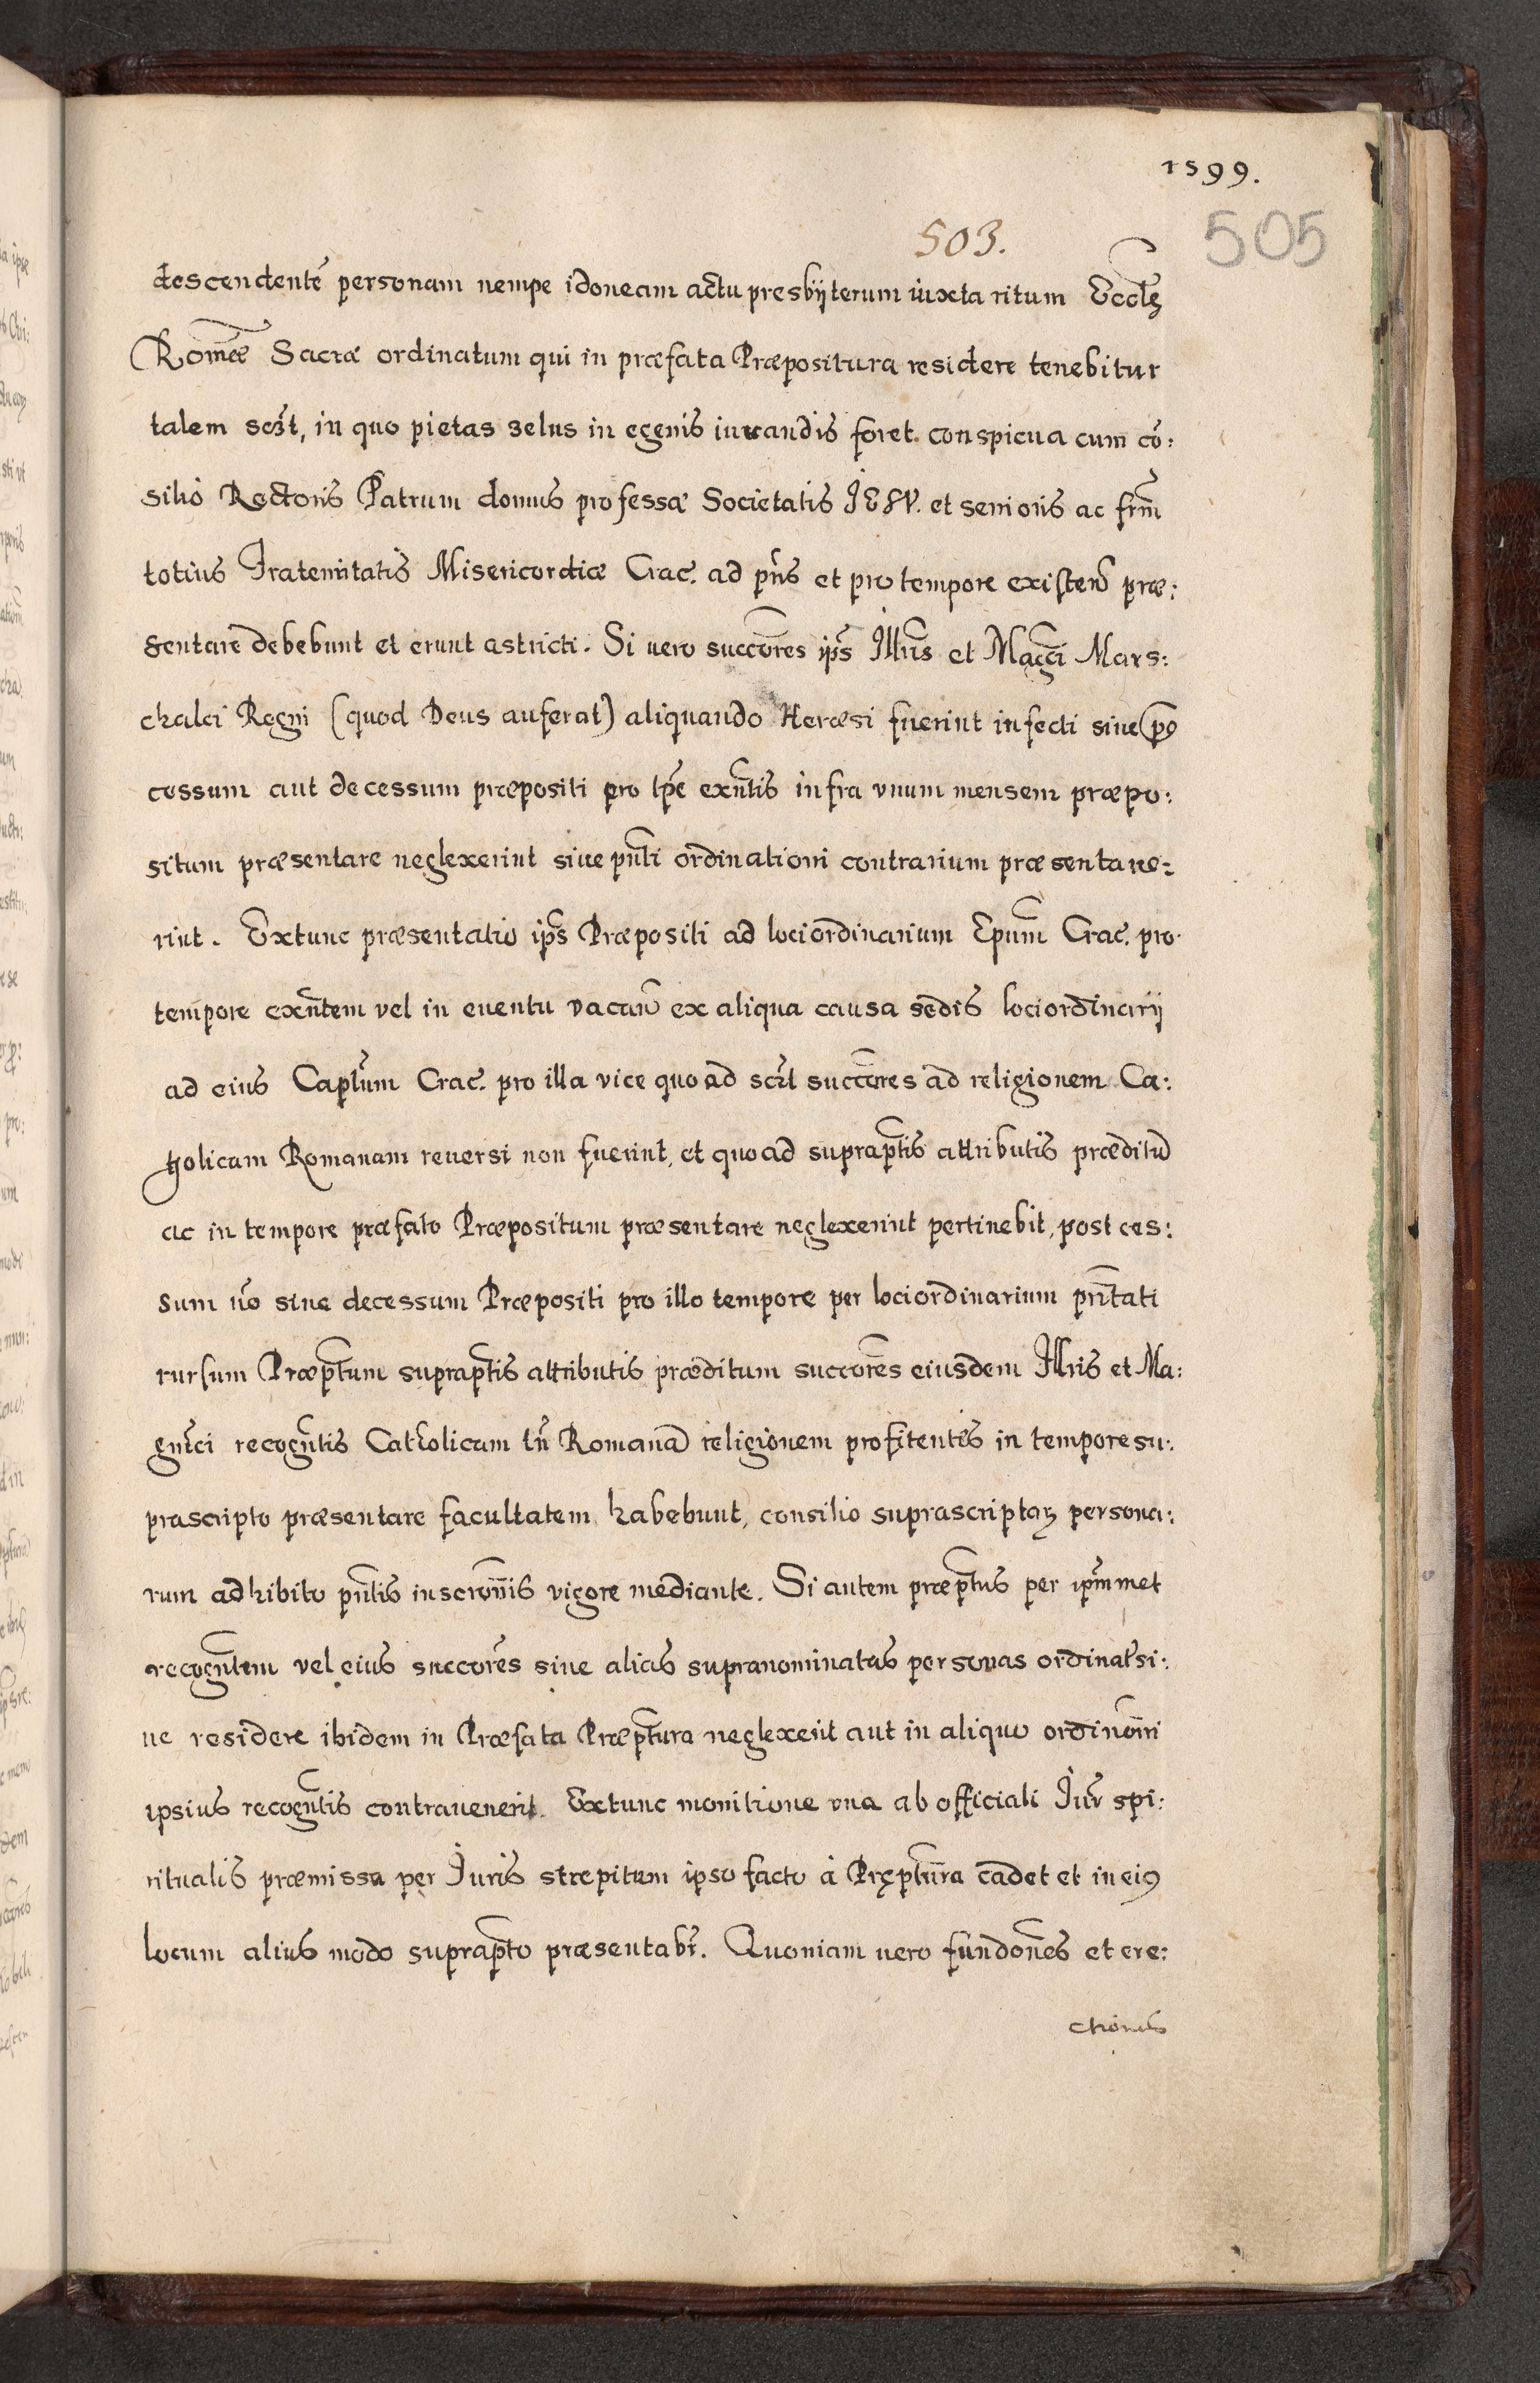 1599.
503. 505
descendentē personam nempe idoneam actu presbÿterum iuxta ritum Eccłę
Romēæ Sacræ ordinatum qui in præfata Præpositura residere tenebitur
talem sclt, in quo pietas zelus in egenis iuvandis foret conspicua cum cō:
silio Rectoris Patrum domus professæ Societatis IESV. et senioris ac frm̄
totius Fraternitatis Misericordiæ Crac. ad pn̄s et pro tempore existeñ præ:
sentare debebunt et erunt astricti. Si uero succōres ip̄s Illn̄s et Mag̃ci Mars:
chalci Regni (quod Deus auferat) aliquando Heræsi fuerint infecti siue
cessum aut decessum præpositi pro tp̄e exn̄tis infra vnum mensem præpo:
situm præsentare neglexerint siue pn̄ti ordinationi contrarium præsentaue:
rint. Extunc præsentatio ip̄s Præpositi ad lociordinarium Ep̄um Crac. pro
tempore exn̄tem vel in euentu vacañ ex aliqua causa sedis lociordinarij
ad eius Cap̄tlum Crac. pro illa vice quoad sclt succōres ad religionem Ca:
tholicam Romanam reuersi non fuerint, et quoad suprap̄tis attributis præditū
ac in tempore præfato Præpositum præsentare neglexerint pertinebit, post ces:
sum u̅o siue decessum Præpositi pro illo tempore per lociordinarium pn̄tati
rursum Præp̄tum suprap̄tis attributis præditum succōres eiusdem Illris et Ma:
gn̄ci recogn̄tis Catholicam tn̄ Romanā religionem profitentes in tempore su:
prascripto præsentare facultatem habebunt, consilio suprascriptoꝝ persona:
rum adhibito pn̄tis inscrōnis vigore mediante. Si autem præp̄tus per ip̄mmet
recogn̄tem vel eius succōres siue alias supranominatas personas ordinats̄ si:
ue residere ibidem in Præfata Præp̄tura neglexerit aut in aliquo ordinōni
ipsius recogn̄tis contrauenerit. Extunc monitione vna ab officiali Iur̄ spi:
ritualis præmissa per Iuris strepitum ipso facto à Pręp̄tura cadet et in eiꝰ
locum alius modo suprap̄to præsentabr̄. Quoniam uero fundōnes et ere:
ctiones